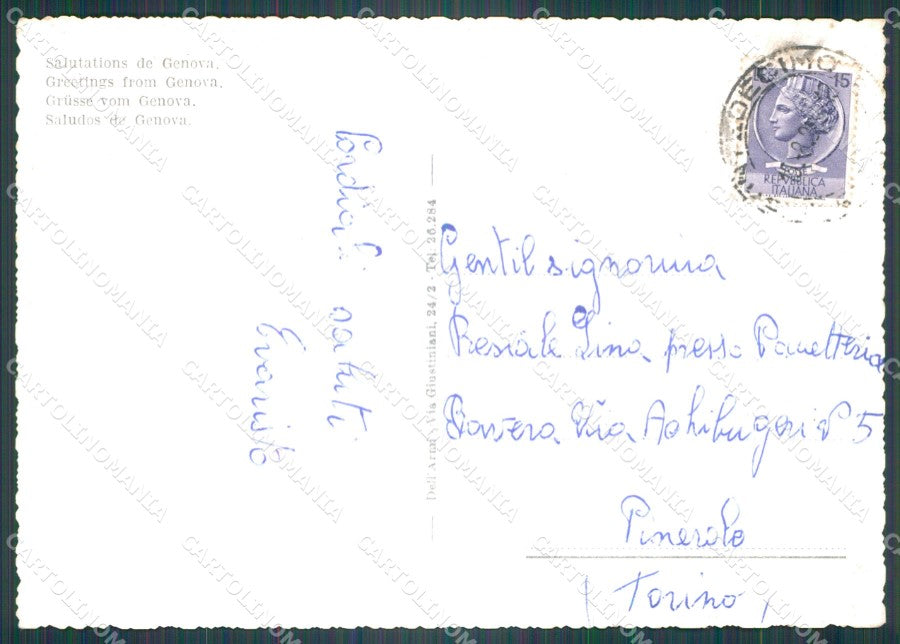 Salutations de Genova.
Greetings from Genova.
Grüsse vom Genova.
Saludos de Genova.
Cordiali saluti
Evaristo
Dell'Armi, Via Giustiniani, 24/2 - Tel 26.284
15
REPVBBLICA
ITALIANA
Gentil signorina
Lina presso Panetteria
Via 5
Pinerolo
(Torino)
CARTOLINOMANIA